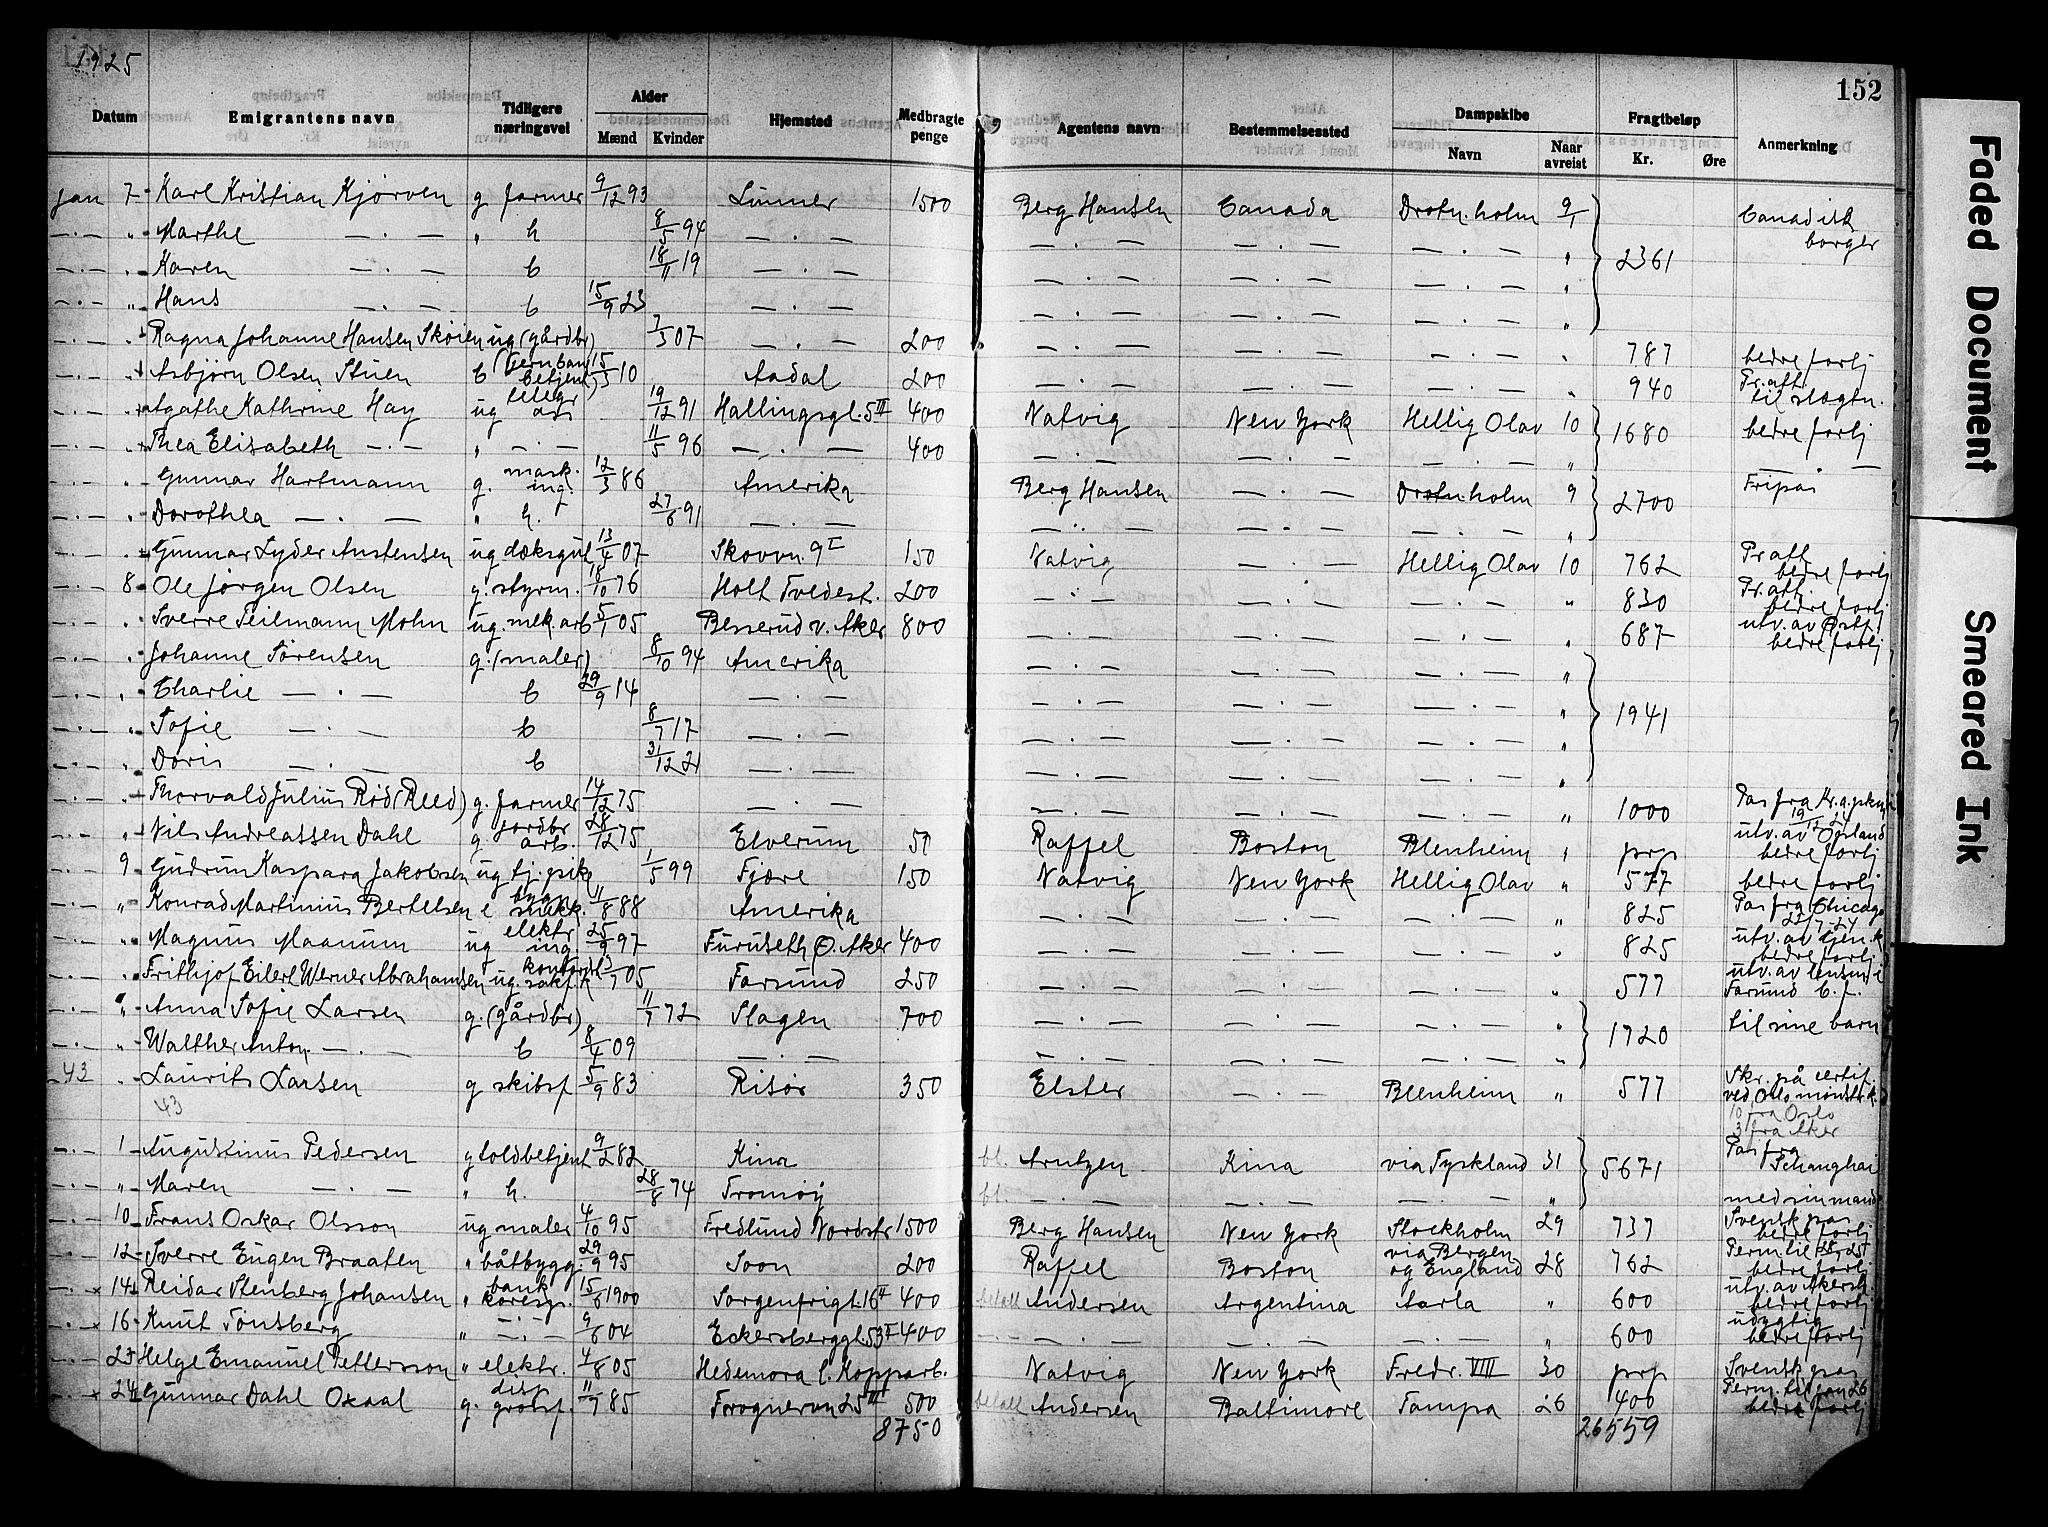 1925
152
Datum Emigrantens navn Tidligere næringsvei Alder Mænd Kvinder Hjemsted Medbragte penge Agentens navn Bestemmelsessted Dampskibe Navn Naar avreist Fragtbeløp Kr. Øre Anmerkning
Jan 7 Karl Kristian Kjørven g farmer 9/12 93 Lunner 1500 Berg Hansen Canada Drotn.holm 9/1 Canadisk borger
—.— " Marthe —.— " h 8/5 94 —.— —.— —.— —.— "
—.— " Karen —.— b 18/11 19 —.— —.— —.— —.— " 2361
—.— " Hans —.— b 15/9 23 —.— —.— —.— —.— "
—.— " Ragna Johanne Hansen Skøien ug (gårdbr) 7/3 07 —.— 200 —.— —.— —.— " 787 bedre forlj
—.— " Asbjørn Olsen Stuen b (Jernban betjent) 15/3 10 Aadal 200 —.— —.— —.— " 940 Fr.att til slægtn.
—.— " Agathe Kathrine Hay ug telegr ass 19/12 91 Hallingsgt. 5 III 400 Natvig New York Hellig Olav 10 1680 bedre forlj
—.— " Thea Elisabeth —.— " —.— 11/5 96 —.— 400 —.— —.— —.— " —.—
—.— " Gunnar Hartmann g. mask. ing. 12/3 86 Amerika Berg Hansen —.— Drotnholm 9 2700 Fripas
—.— " Dorothea —.— " h. 27/6 91 —.— —.— —.— —.— "
—.— " Gunnar Lyder Austensen ug dæksgut 13/4 07 Skovvn 9 I 150 Natvig —.— Hellig Olav 10 762 Fr att bedre forlj
—.— 8 Ole Jørgen Olsen g. styrm. 18/10 76 Holt Tvedest. 200 —.— —.— —.— " 830 Fr. att. bedre forlj
—.— " Sverre Teilmann Mohn ug. mek. arb 5/1 05 Besserud v. Aker 800 —.— —.— —.— " 687 utv. av Østf. bedre forlj
—.— " Johanne Sørensen g. (maler) 8/10 94 Amerika —.— —.— —.— "
—.— " Charlie —.— b 29/9 14 —.— —.— —.— —.— "
—.— " Sofie —.— b 8/7 17 —.— —.— —.— —.— " 1941
—.— " Doris —.— b 31/12 21 —.— —.— —.— —.— "
—.— " Thorvald Julius Rød (Reed) g. farmer 14/12 75 —.— —.— —.— —.— " 1000 Pas fra Kr.a. 19/12 24
—.— " Nils Andreassen Dahl g. jordbr arb. 28/12 75 Elverum 50 Raffel Boston Blenheim " prp utv. av Opland bedre forlj
—.— 9 Gudrun Kaspara Jakobsen ug tj. pike 1/5 99 Fjære 150 Natvig New York Hellig Olav " 577 bedre forlj
—.— " Konrad Martinius Bertelsen e bygn snekk. 11/8 88 Amerika —.— —.— —.— " 825 Pas fra Chicago 22/7-24
—.— " Magnus Maanum ug elektr ing. 25/9 97 Furuseth Ø. Aker 400 —.— —.— —.— " 825 bedre forlj
—.— " Frithjof Eilert Werner Abrahamsen ug. 05 Farsund 250 —.— —.— —.— " 577 utv. av lensm. i Farsund b. f.
—.— " Anna Sofie Larsen g. (gårdbr) 11/7 72 Slagen 700 —.— —.— —.— " 1720 til sine barn
—.— " Walther Anton —.— b 8/4 09 —.— —.— —.— —.— "
43 " Laurits Larsen g skibsf 5/9 83 Risør 350 Elster —.— Blenheim " 577 Skr. på certif. ved Oslo mønstr.k.
43 10 fra Oslo
3 fra Aker
—.— 1 Augustinus Pedersen g toldbetjent 9/2 82 Kina bt. Arntzen Kina via Tyskland 31 5671 Pas fra Schanghai
—.— " Maren —.— " h. 28/8 74 Tromøy bt. —.— —.— —.— " med sin mand
—.— 10 Frans Oskar Olsson ug maler 4/10 95 Fredlund Nordstr 1500 Berg Hansen New York Stockholm 29 737 Svensk pas bedre forlj
—.— 12 Sverre Eugen Braaten " båtbygg. 29/9 95 Soon 200 Raffel Boston via Bergen og England 28 762 bedre forlj
—.— 14 Reidar Stenberg Johansen " bank koresp. 15/6 1900 Sorgenfrigt. 16 II 400 betalt Andersen Argentina Aarla " 600 utv. av Akersh. bedre forlj
—.— × 16 Knut Tønsberg " —.— 9/6 04 Eckersberggt. 53 I 400 —.— —.— —.— —.— " 600 udygtig bedre forlj
—.— × 23 Helge Emanuel Pettersson " elektr. 4/8 05 Hedemora l. Kopparb. Natvig New York Fredr. VIII 30 prp Svensk pas
—.— × 24 Gunnar Dahl Oxaal g. disp grossf. 11/7 85 Frognervn 25 III 500 betalt Andersen Baltimore Tampa 26 400 Perm. til jan 26 bedre forlj
8750 26559
Faded Document
Smeared Ink